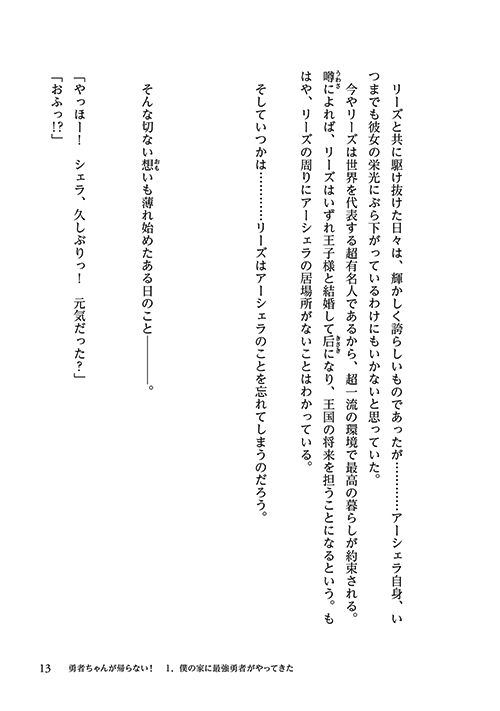 リーズと共に駆け抜けた日々は、輝かしく誇らしいものであったが…………アーシェラ自身、い
つまでも彼女の栄光にぶら下がっているわけにもいかないと思っていた。
今やリーズは世界を代表する超有名人であるから、超一流の環境で最高の暮らしが約束される。
噂によれば、リーズはいずれ王子様と結婚して后になり、王国の将来を担うことになるという。も
はや、リーズの周りにアーシェラの居場所がないことはわかっている。
そしていつかは…………リーズはアーシェラのことを忘れてしまうのだろう。
そんな切ない想いも薄れ始めたある日のこと――――。
「やっほー！　シェラ、久しぶりっ！　元気だった？」
「おふっ!?」
13　勇者ちゃんが帰らない！　1．僕の家に最強勇者がやってきた